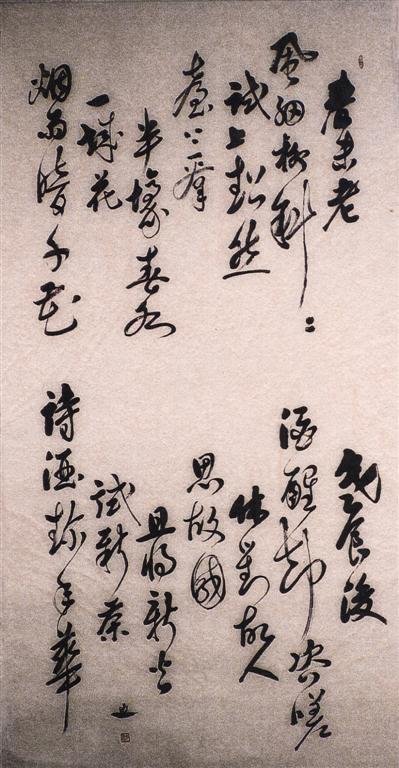 春未老
風細柳斜〻
試上超然
臺上看
半壕春水
一城花
烟雨暗千家
寒食後
酒醒却咨嗟
休對故人
思故國
且將新火
試新茶
詩酒趁年華